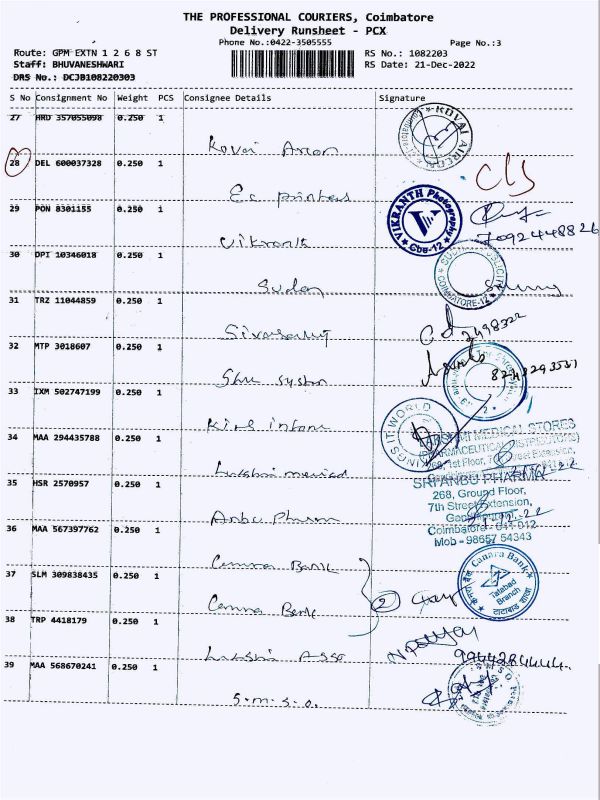 THE PROFESSIONAL COURIERS, Coimbatore
Delivery Runsheet - PCX
Phone No.:0422-3505555
Page No.:3
Route: GPM EXTN 1 2 6 8 ST
RS No.: 1082203
Staff: BHUVANESHWARI
RS Date: 21-Dec-2022
DRS No.: DCJB108220303
S No Consignment No Weight PCS Consignee Details Signature
27 HRD 357055098 0.250 1
Kovai Aircon
KOVAI AIRCON
28 DEL 600037328 0.250 1
Ec printers
C/S
29 PON 8301155 0.250 1
Vikranth
VIKRANTH Photography
Cbe-12
7092448826
30 DPI 10346018 0.250 1
Sudar
COIMBATORE-12
31 TRZ 11044859 0.250 1
32 MTP 3018607 0.250 1
Shri System
33 IXM 502747199 0.250 1
Kins Inform
KINGSIT WORLD
34 MAA 294435788 0.250 1
Lakshmi medical
LAKSHMI MEDICAL STORES
(PHARMACEUTICAL DISTRIBUTORS)
35 HSR 2570957 0.250 1
Anbu Pharm
SRI ANBU PHARMA
268, Ground Floor,
7th Street Extension,
Coimbatore - 641 012
Mob - 98657 54343
36 MAA 567397762 0.250 1
Canara Bank
37 SLM 309838435 0.250 1
Canara Bank
2
केनरा बैंक Canara Bank
Tatabad
Branch
टाटाबाद शाखा
38 TRP 4418179 0.250 1
Lakshmi Asso
9944284444
39 MAA 568670241 0.250 1
S.M.S.O.